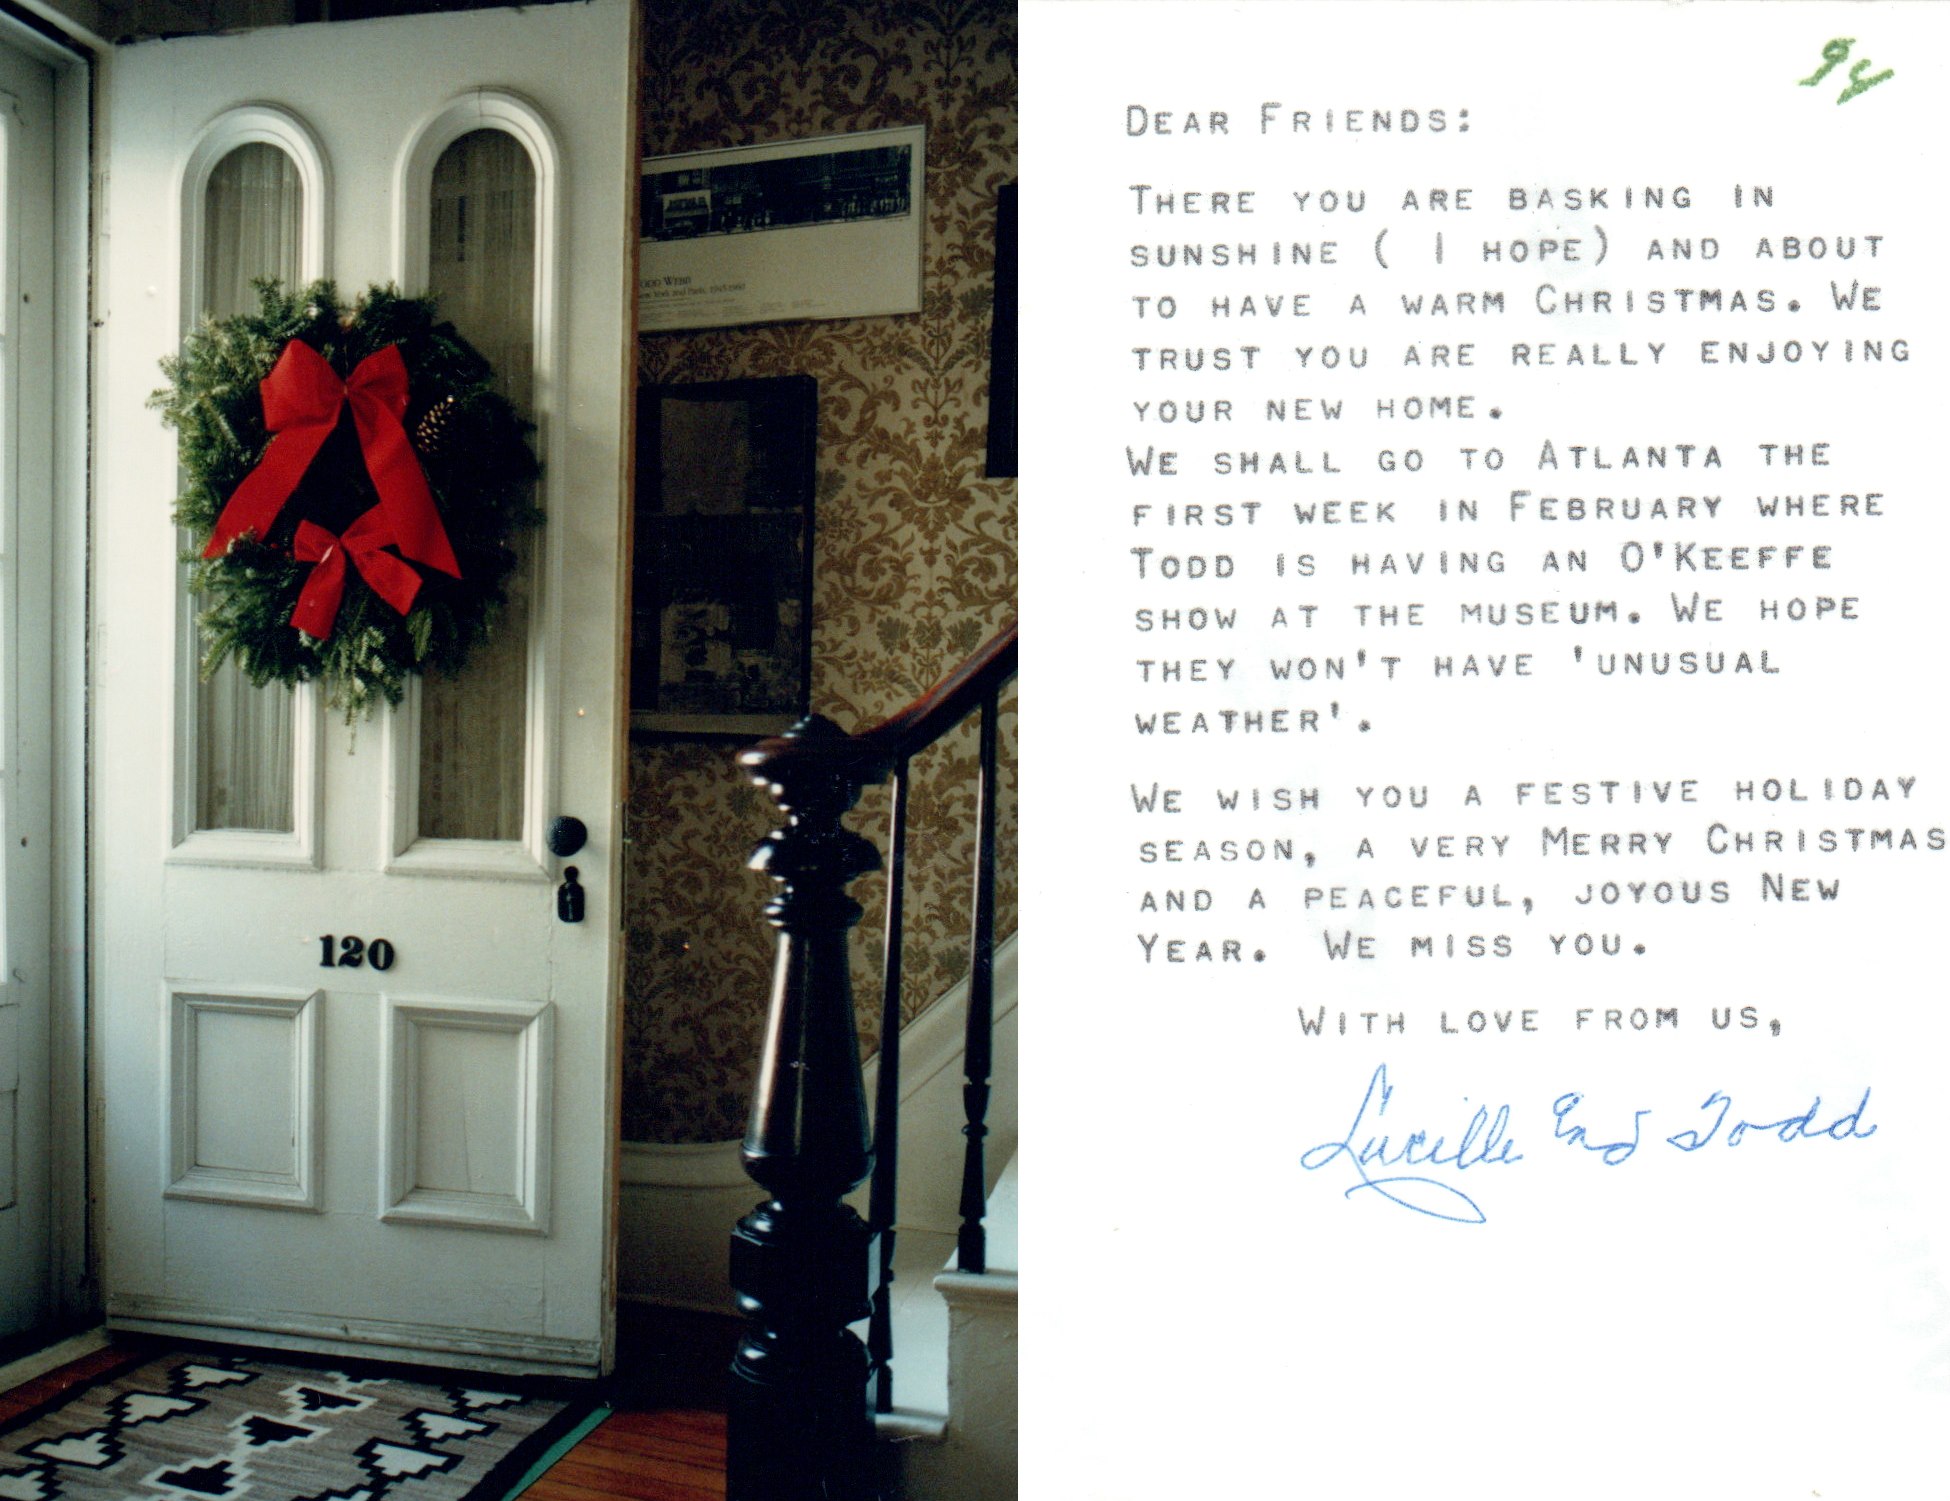 ODD WEBB
New York and Paris, 1945-1960
120
94
DEAR FRIENDS:
THERE YOU ARE BASKING IN
SUNSHINE ( I HOPE) AND ABOUT
TO HAVE A WARM CHRISTMAS. WE
TRUST YOU ARE REALLY ENJOYING
YOUR NEW HOME.
WE SHALL GO TO ATLANTA THE
FIRST WEEK IN FEBRUARY WHERE
TODD IS HAVING AN O'KEEFFE
SHOW AT THE MUSEUM. WE HOPE
THEY WON'T HAVE 'UNUSUAL
WEATHER'.
WE WISH YOU A FESTIVE HOLIDAY
SEASON, A VERY MERRY CHRISTMAS
AND A PEACEFUL, JOYOUS NEW
YEAR. WE MISS YOU.
WITH LOVE FROM US,
Lucille and Todd